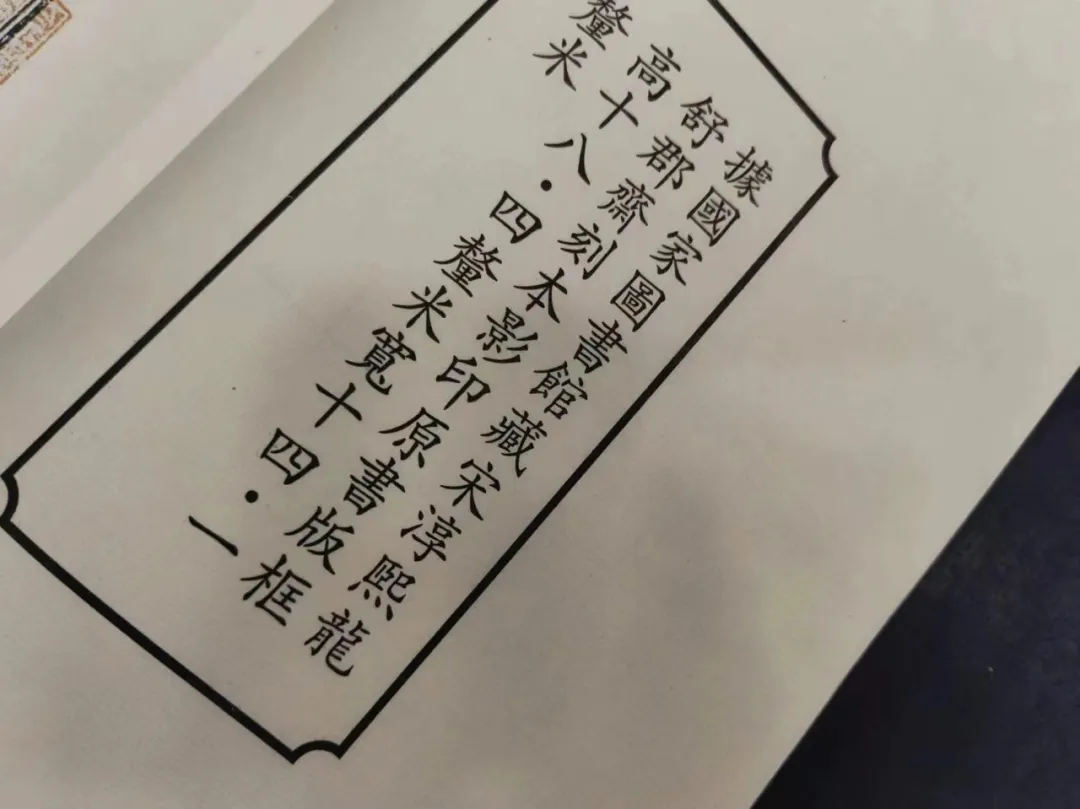 據國家圖書館藏宋淳熙龍
舒郡齋刻本影印原書版框
高十八·四釐米寬十四·一
釐米